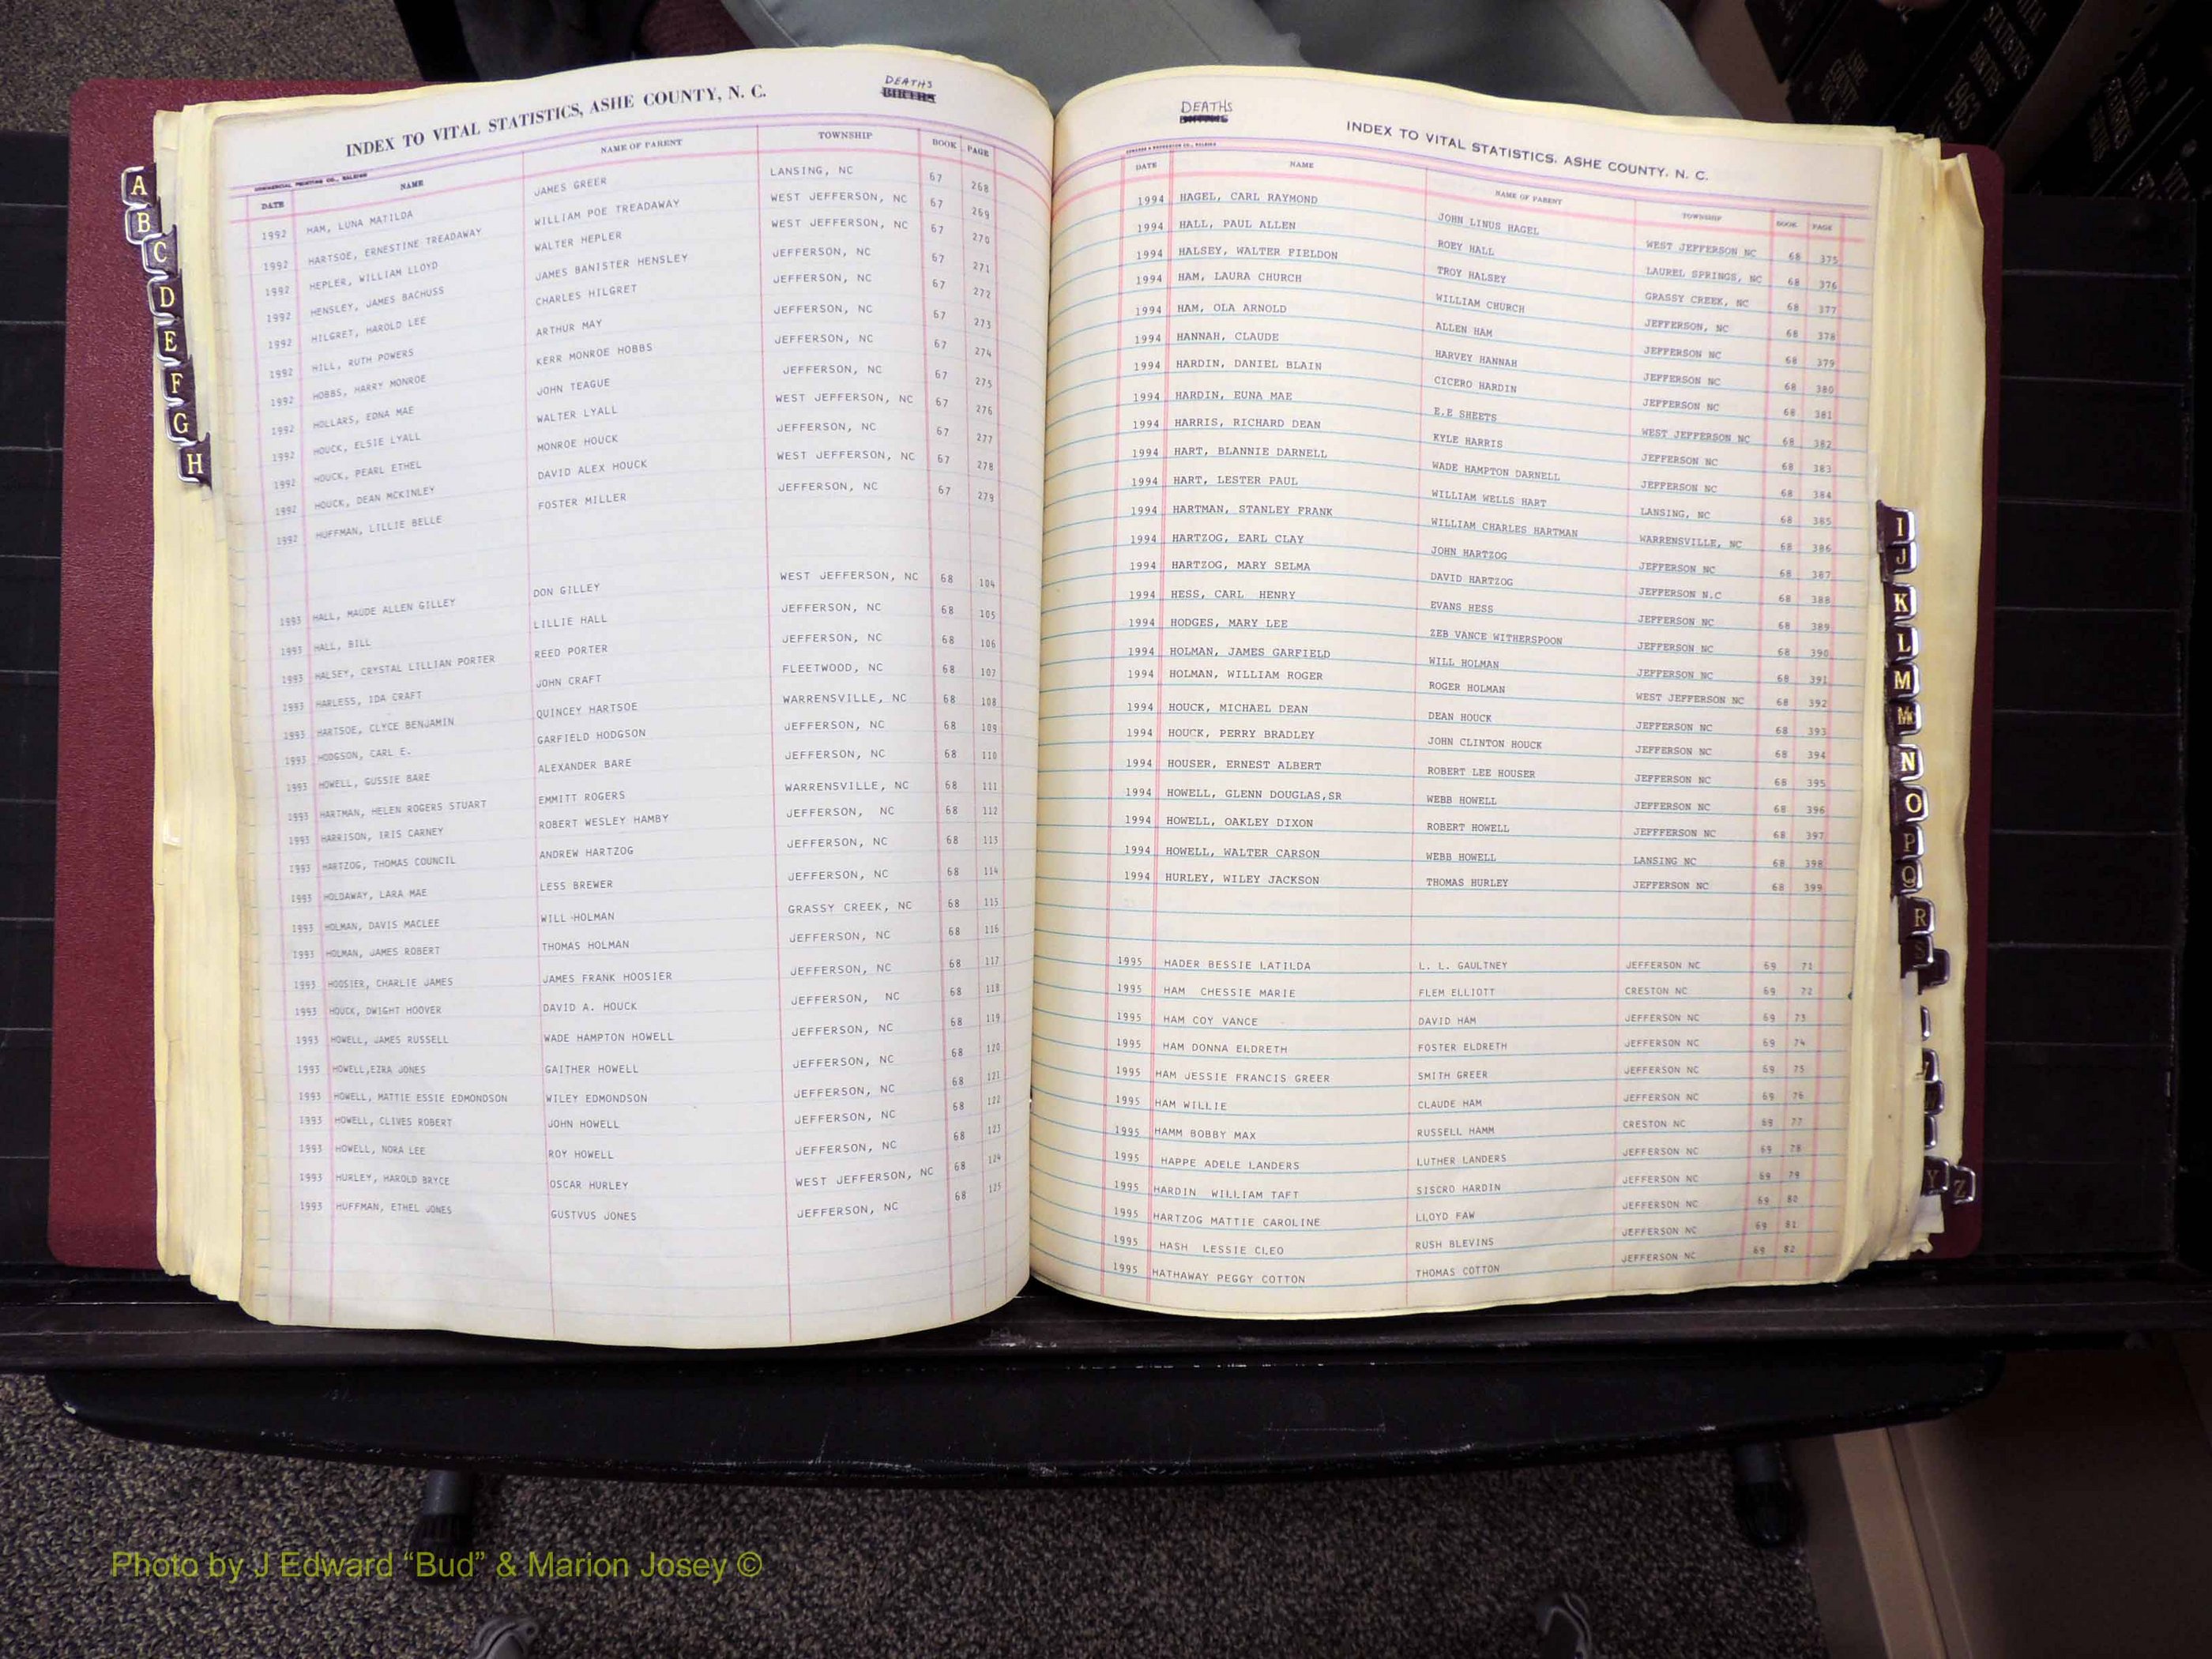 DEATHS
INDEX TO VITAL STATISTICS, ASHE COUNTY, N. C. BIRTHS
COMMERCIAL PRINTING CO., RALEIGH
DATE NAME NAME OF PARENT TOWNSHIP BOOK PAGE
1992 HAM, LUNA MATILDA JAMES GREER LANSING, NC 67 268
1992 HARTSOE, ERNESTINE TREADAWAY WILLIAM POE TREADAWAY WEST JEFFERSON, NC 67 269
1992 HEPLER, WILLIAM LLOYD WALTER HEPLER WEST JEFFERSON, NC 67 270
1992 HENSLEY, JAMES BACHUSS JAMES BANISTER HENSLEY JEFFERSON, NC 67 271
1992 HILGRET, HAROLD LEE CHARLES HILGRET JEFFERSON, NC 67 272
1992 HILL, RUTH POWERS ARTHUR MAY JEFFERSON, NC 67 273
1992 HOBBS, HARRY MONROE KERR MONROE HOBBS JEFFERSON, NC 67 274
1992 HOLLARS, EDNA MAE JOHN TEAGUE JEFFERSON, NC 67 275
1992 HOUCK, ELSIE LYALL WALTER LYALL WEST JEFFERSON, NC 67 276
1992 HOUCK, PEARL ETHEL MONROE HOUCK JEFFERSON, NC 67 277
1992 HOUCK, DEAN MCKINLEY DAVID ALEX HOUCK WEST JEFFERSON, NC 67 278
1992 HUFFMAN, LILLIE BELLE FOSTER MILLER JEFFERSON, NC 67 279
1993 HALL, MAUDE ALLEN GILLEY DON GILLEY WEST JEFFERSON, NC 68 104
1993 HALL, BILL LILLIE HALL JEFFERSON, NC 68 105
1993 HALSEY, CRYSTAL LILLIAN PORTER REED PORTER JEFFERSON, NC 68 106
1993 HARLESS, IDA CRAFT JOHN CRAFT FLEETWOOD, NC 68 107
1993 HARTSOE, CLYCE BENJAMIN QUINCEY HARTSOE WARRENSVILLE, NC 68 108
1993 HODGSON, CARL E. GARFIELD HODGSON JEFFERSON, NC 68 109
1993 HOWELL, GUSSIE BARE ALEXANDER BARE JEFFERSON, NC 68 110
1993 HARTMAN, HELEN ROGERS STUART EMMITT ROGERS WARRENSVILLE, NC 68 111
1993 HARRISON, IRIS CARNEY ROBERT WESLEY HAMBY JEFFERSON, NC 68 112
1993 HARTZOG, THOMAS COUNCIL ANDREW HARTZOG JEFFERSON, NC 68 113
1993 HOLDAWAY, LARA MAE LESS BREWER JEFFERSON, NC 68 114
1993 HOLMAN, DAVIS MACLEE WILL HOLMAN GRASSY CREEK, NC 68 115
1993 HOLMAN, JAMES ROBERT THOMAS HOLMAN JEFFERSON, NC 68 116
1993 HOOSIER, CHARLIE JAMES JAMES FRANK HOOSIER JEFFERSON, NC 68 117
1993 HOUCK, DWIGHT HOOVER DAVID A. HOUCK JEFFERSON, NC 68 118
1993 HOWELL, JAMES RUSSELL WADE HAMPTON HOWELL JEFFERSON, NC 68 119
1993 HOWELL,EZRA JONES GAITHER HOWELL JEFFERSON, NC 68 120
1993 HOWELL, MATTIE ESSIE EDMONDSON WILEY EDMONDSON JEFFERSON, NC 68 121
1993 HOWELL, CLIVES ROBERT JOHN HOWELL JEFFERSON, NC 68 122
1993 HOWELL, NORA LEE ROY HOWELL JEFFERSON, NC 68 123
1993 HURLEY, HAROLD BRYCE OSCAR HURLEY WEST JEFFERSON, NC 68 124
1993 HUFFMAN, ETHEL JONES GUSTVUS JONES JEFFERSON, NC 68 125
DEATHS
INDEX TO VITAL STATISTICS. ASHE COUNTY. N. C.
DATE NAME NAME OF PARENT TOWNSHIP BOOK PAGE
1994 HAGEL, CARL RAYMOND JOHN LINUS HAGEL WEST JEFFERSON NC 68 375
1994 HALL, PAUL ALLEN ROBY HALL LAUREL SPRINGS, NC 68 376
1994 HALSEY, WALTER FIELDON TROY HALSEY GRASSY CREEK, NC 68 377
1994 HAM, LAURA CHURCH WILLIAM CHURCH JEFFERSON, NC 68 378
1994 HAM, OLA ARNOLD ALLEN HAM JEFFERSON NC 68 379
1994 HANNAH, CLAUDE HARVEY HANNAH JEFFERSON NC 68 380
1994 HARDIN, DANIEL BLAIN CICERO HARDIN JEFFERSON NC 68 381
1994 HARDIN, EUNA MAE E.E SHEETS WEST JEFFERSON NC 68 382
1994 HARRIS, RICHARD DEAN KYLE HARRIS JEFFERSON NC 68 383
1994 HART, BLANNIE DARNELL WADE HAMPTON DARNELL JEFFERSON NC 68 384
1994 HART, LESTER PAUL WILLIAM WELLS HART LANSING, NC 68 385
1994 HARTMAN, STANLEY FRANK WILLIAM CHARLES HARTMAN WARRENSVILLE, NC 68 386
1994 HARTZOG, EARL CLAY JOHN HARTZOG JEFFERSON NC 68 387
1994 HARTZOG, MARY SELMA DAVID HARTZOG JEFFERSON N.C 68 388
1994 HESS, CARL HENRY EVANS HESS JEFFERSON NC 68 389
1994 HODGES, MARY LEE ZEB VANCE WITHERSPOON JEFFERSON NC 68 390
1994 HOLMAN, JAMES GARFIELD WILL HOLMAN JEFFERSON NC 68 391
1994 HOLMAN, WILLIAM ROGER ROGER HOLMAN WEST JEFFERSON NC 68 392
1994 HOUCK, MICHAEL DEAN DEAN HOUCK JEFFERSON NC 68 393
1994 HOUCK, PERRY BRADLEY JOHN CLINTON HOUCK JEFFERSON NC 68 394
1994 HOUSER, ERNEST ALBERT ROBERT LEE HOUSER JEFFERSON NC 68 395
1994 HOWELL, GLENN DOUGLAS,SR WEBB HOWELL JEFFERSON NC 68 396
1994 HOWELL, OAKLEY DIXON ROBERT HOWELL JEFFFERSON NC 68 397
1994 HOWELL, WALTER CARSON WEBB HOWELL LANSING NC 68 398
1994 HURLEY, WILEY JACKSON THOMAS HURLEY JEFFERSON NC 68 399
1995 HADER BESSIE LATILDA L. L. GAULTNEY JEFFERSON NC 69 71
1995 HAM CHESSIE MARIE FLEM ELLIOTT CRESTON NC 69 72
1995 HAM COY VANCE DAVID HAM JEFFERSON NC 69 73
1995 HAM DONNA ELDRETH FOSTER ELDRETH JEFFERSON NC 69 74
1995 HAM JESSIE FRANCIS GREER SMITH GREER JEFFERSON NC 69 75
1995 HAM WILLIE CLAUDE HAM JEFFERSON NC 69 76
1995 HAMM BOBBY MAX RUSSELL HAMM CRESTON NC 69 77
1995 HAPPE ADELE LANDERS LUTHER LANDERS JEFFERSON NC 69 78
1995 HARDIN WILLIAM TAFT SISCRO HARDIN JEFFERSON NC 69 79
1995 HARTZOG MATTIE CAROLINE LLOYD FAW JEFFERSON NC 69 80
1995 HASH LESSIE CLEO RUSH BLEVINS JEFFERSON NC 69 81
1995 HATHAWAY PEGGY COTTON THOMAS COTTON JEFFERSON NC 69 82
A
B
C
D
E
F
G
H
I
J
K
L
M
Mc
N
O
P
Q
R
S
Y
Z
STATISTICS
BIRTHS
1963
Photo by J Edward “Bud” & Marion Josey ©